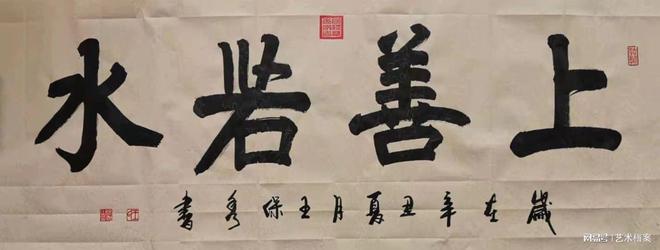 上善若水
歲在辛丑夏月王保秀書
网易号 | 艺术档案